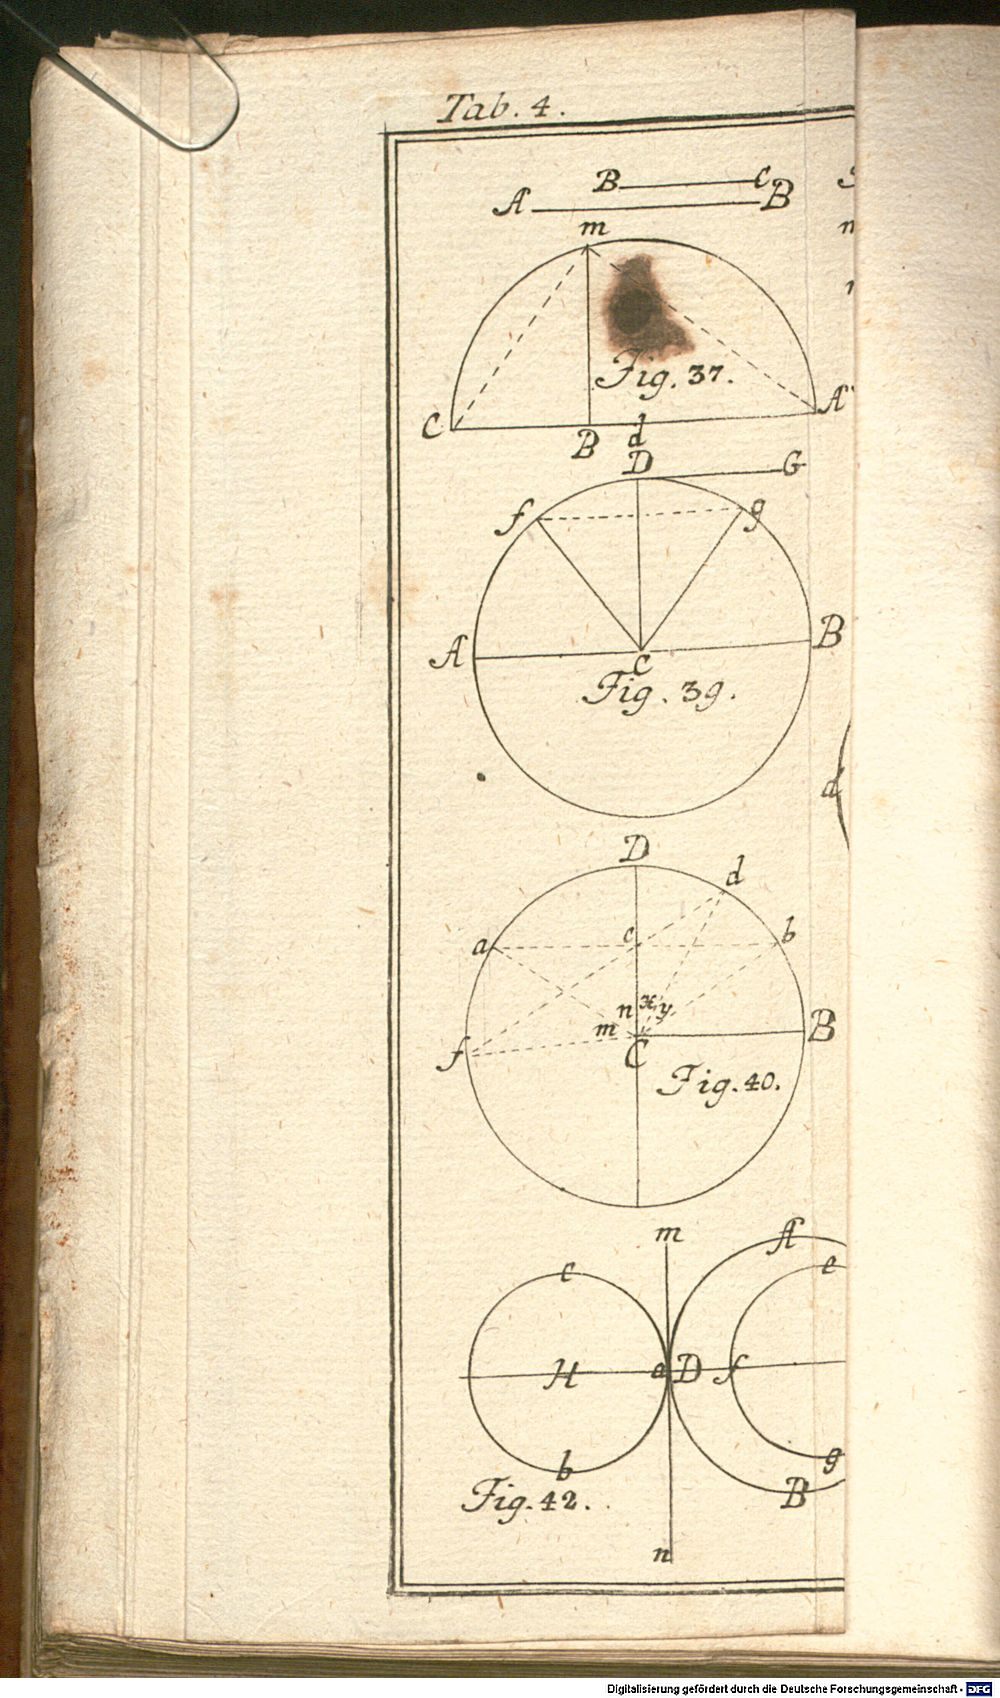 Tab. 4.
B C
A B
m
Fig. 37.
C B d A
D G
f g
A C B
Fig. 39.
D
d
a c b
n x y
m
f C B
Fig. 40.
m A
c e
H a D f
b g
Fig. 42. B
n
d
Digitalisierung gefördert durch die Deutsche Forschungsgemeinschaft - DFG